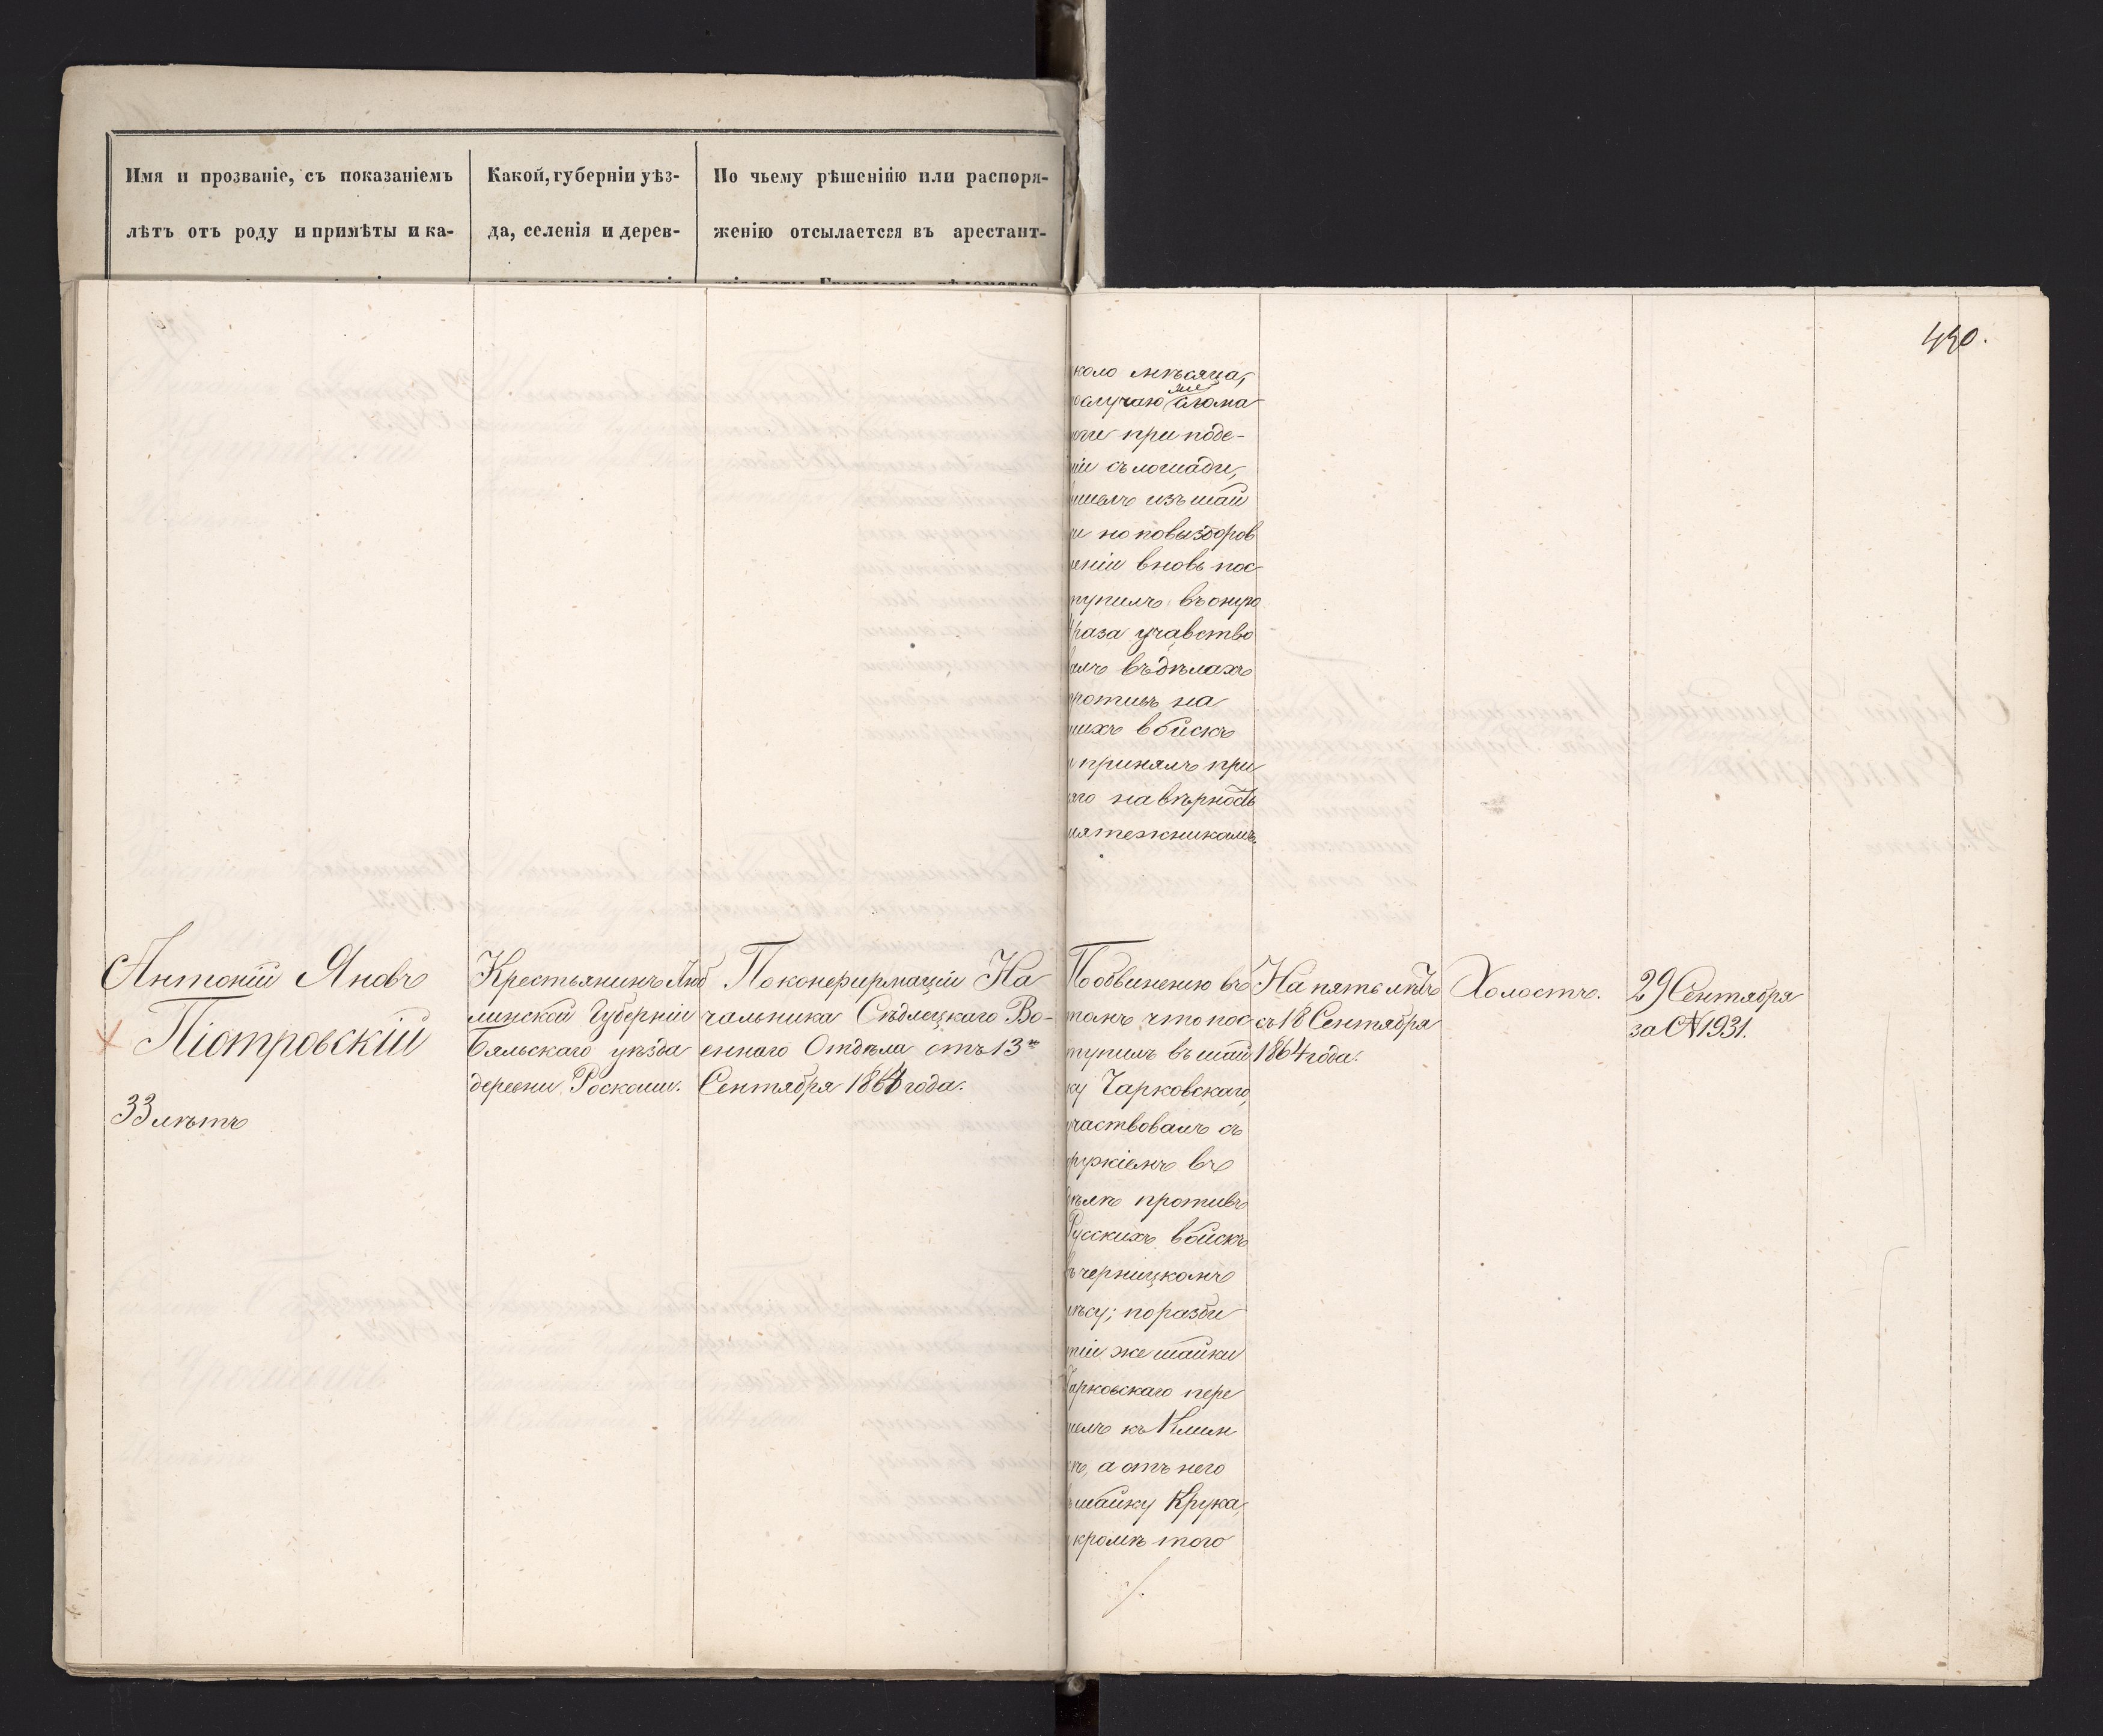 Имя и прозваніе, съ показаніемъ
лѣтъ отъ роду и примѣты и ка-
Какой, губерніи уѣз-
да, селенія и дерев-
По чьему рѣшенію или распоря-
женію отсылается въ арестант-
440.
коло мѣсяца,
послучаю же слома
ноги при поде-
ніи съ лошади,
вышелъ изъ шай
ки но по выздоров
леніи вновь пос-
тупилъ въ оную
раза учавство
валъ въ дѣлахъ
противъ на
шихъ войскъ
и принялъ при
сягу на вѣрность
мятежникамъ.
Антоній Яновъ
Піотровскій
33 лѣтъ
Крестьянинъ Люб
линской Губерніи
Бяльскаго уѣзда
деревни Роскоши.
По конфирмаціи На
чальника Сѣдлецкаго Во-
еннаго Отдѣла отъ 13го
Сентября 1864 года.
По обвиненію въ
томъ что пос
тупилъ въ шай
ку Чарковскаго,
участвовалъ съ
оружіемъ въ
дѣлѣ противъ
Русскихъ войскъ
въ черницкомъ
лѣсу; по разби
тіи же шайки
Чарковскаго пере
шелъ къ Клин
кѣ, а отъ него
въ шайку Крука,
и кромѣ того
/.
На пять лѣтъ
съ 18 Сентября
1864 года.
Холостъ.
29 Сентября
за № 1931.